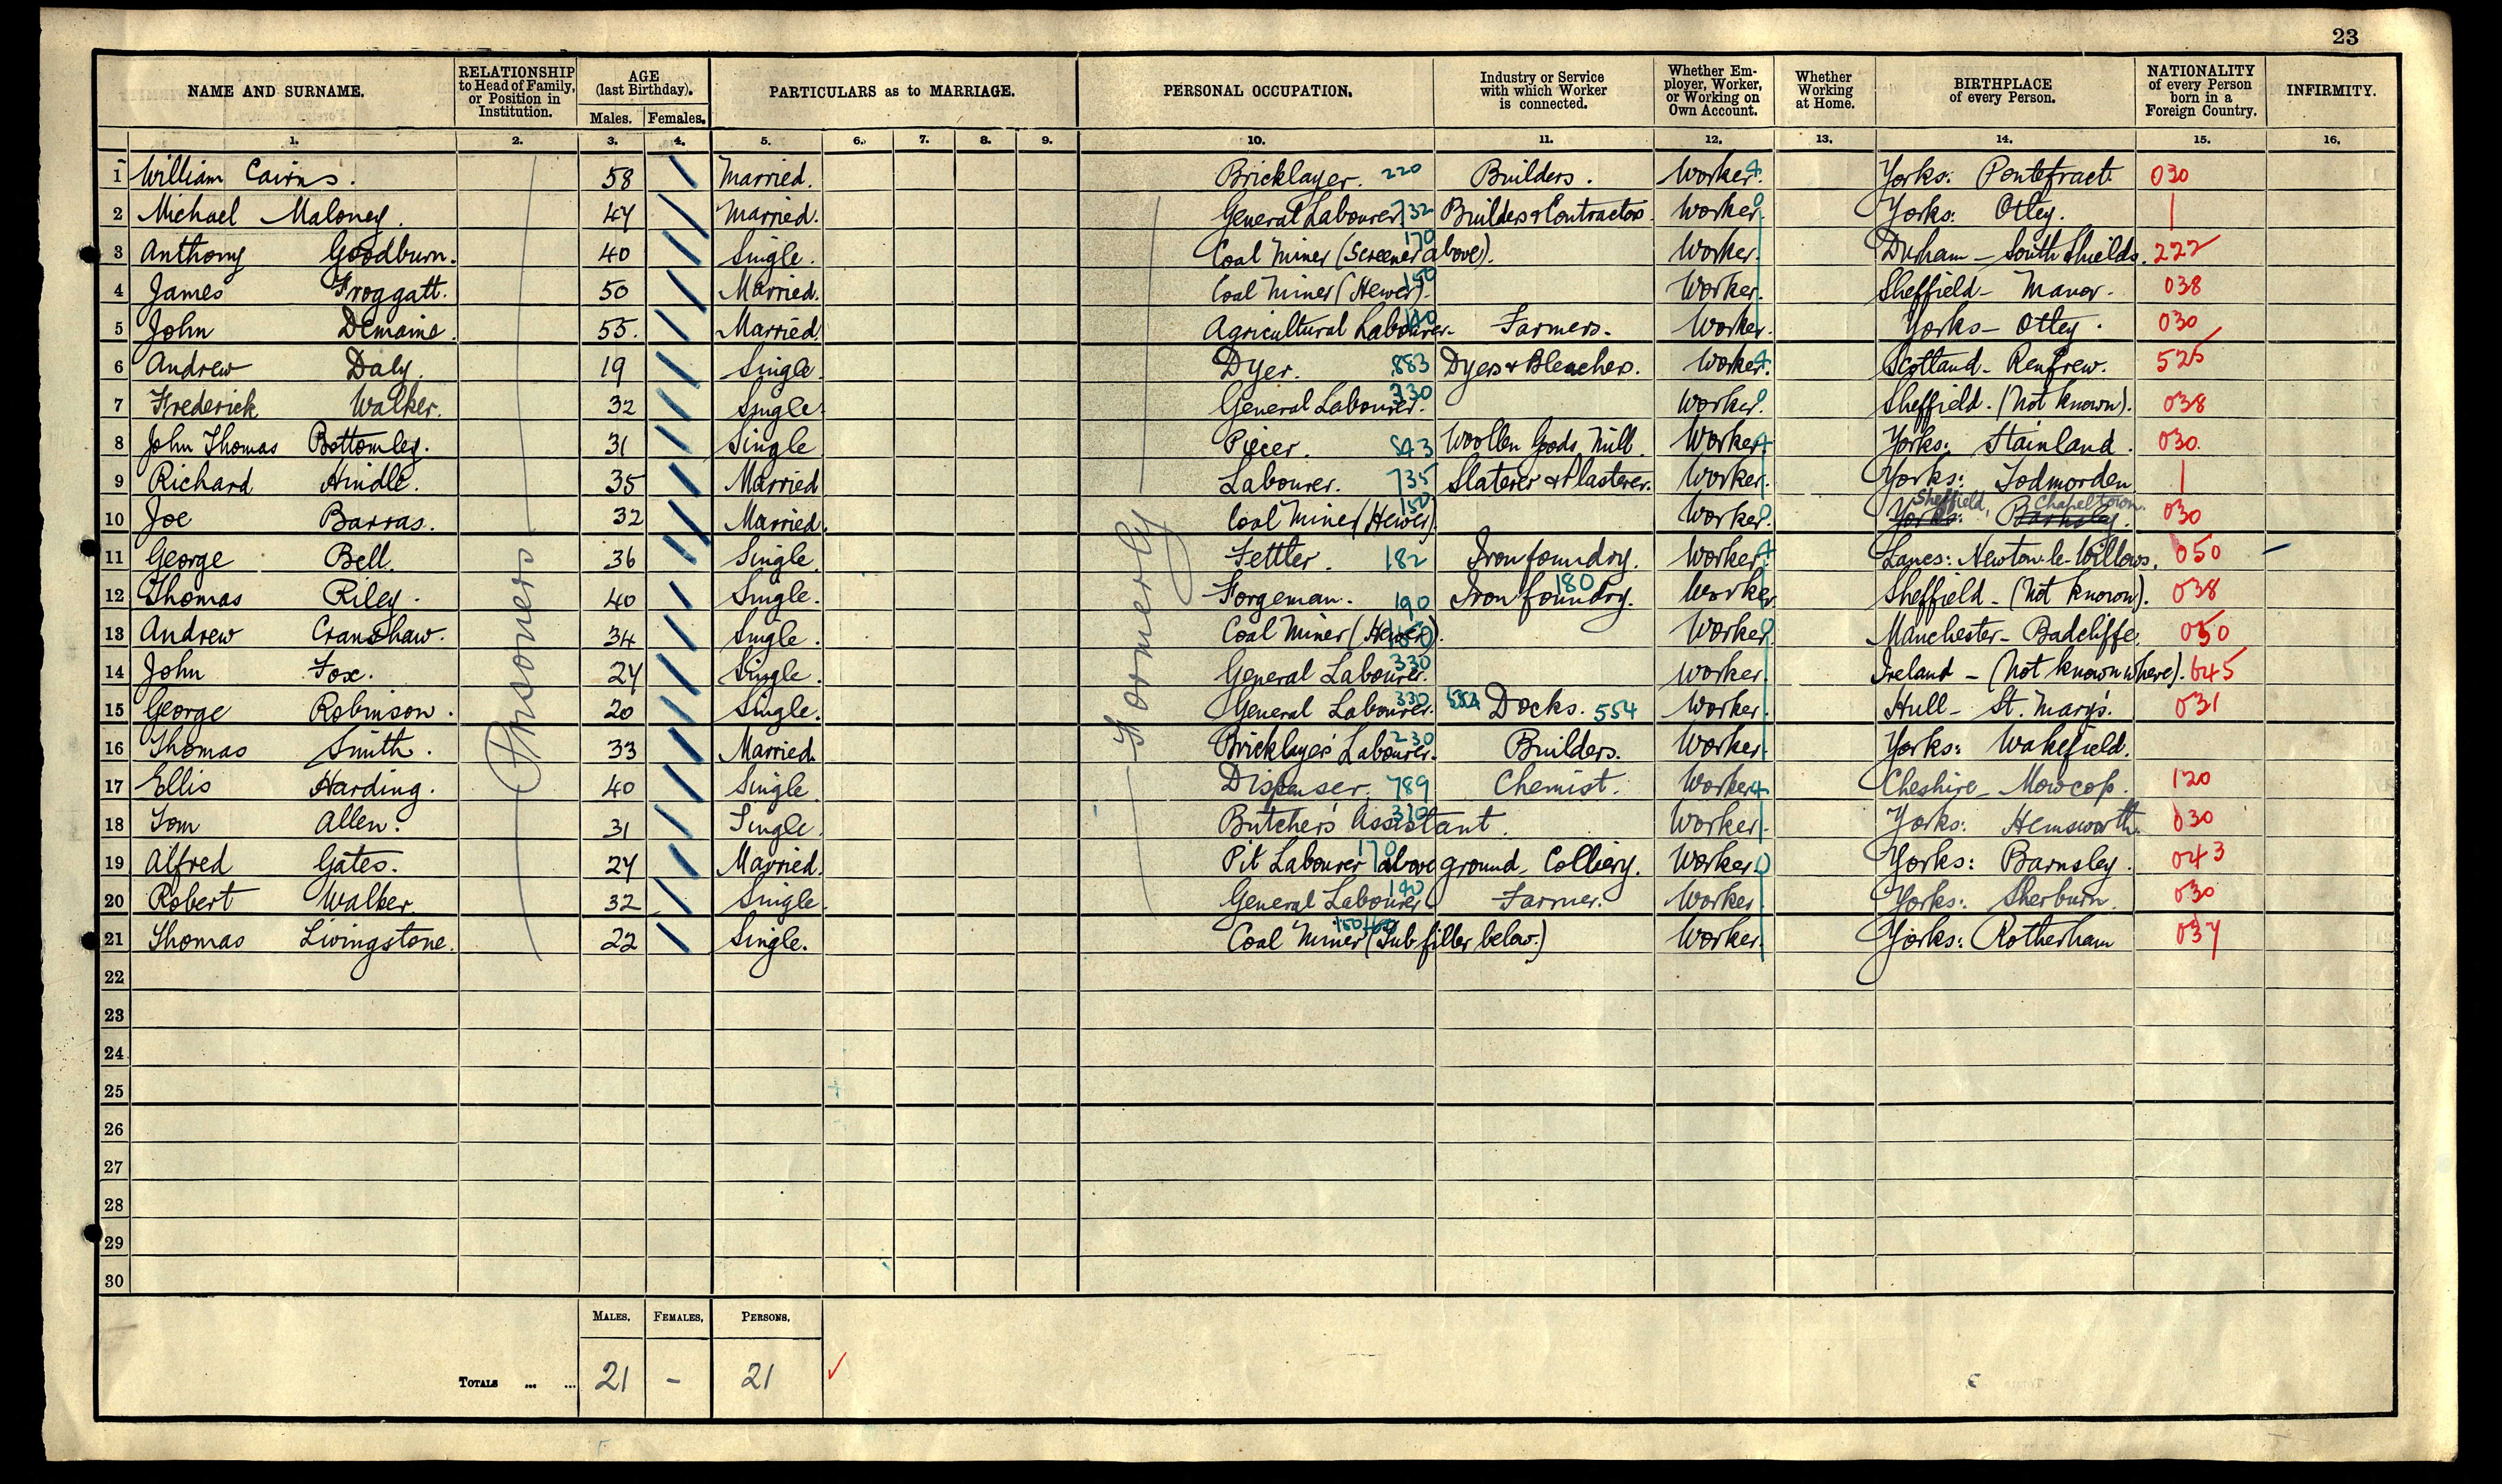 23
NAME AND SURNAME. RELATIONSHIP to Head of Family, or Position in Institution. AGE (last Birthday). Males. Females. PARTICULARS as to MARRIAGE. PERSONAL OCCUPATION. Industry or Service with which Worker is connected. Whether Employer, Worker, or Working on Own Account. Whether Working at Home. BIRTHPLACE of every Person. NATIONALITY of every Person born in a Foreign Country. INFIRMITY.
1. 2. 3. 4. 5. 6. 7. 8. 9. 10. 11. 12. 13. 14. 15. 16.
1 William Cairns. 58 Married. Bricklayer. 220 Builders. Worker. 4 Yorks: Pontefract. 030
2 Michael Maloney. 47 Married. General Labourer 732 Builders & Contractors. Worker. 0 Yorks: Otley. |
3 Anthony Goodburn. 40 Single. Coal Miner (Screener above). 170 Worker. Durham - South Shields. 222
4 James Froggatt. 50 Married. Coal Miner (Hewer). 150 Worker. Sheffield - Manor. 038
5 John Demaine. 55. Married. Agricultural Labourer. Farmers. Worker. Yorks - Otley. 030
6 Andrew Daly. 19 Single. Dyer. 883 Dyers & Bleachers. Worker. 4 Scotland - Renfrew. 525
7 Frederick Walker. 32 Single. General Labourer. 330 Worker. 0 Sheffield. (Not known). 038
8 John Thomas Bottomley. 31 Single Piecer. 543 Woollen Goods Mill. Worker. 4 Yorks: Stainland. 030.
9 Richard Hindle. 35 Married Labourer. 735 Slaterer & Plasterer. Worker. Yorks: Todmorden |
10 Joe Barras. 32 Married. Coal Miner (Hewer) 150 Worker. 0 Yorks: Barnsley. Sheffield, Chapeltown. 030
11 George Bell. 36 Single. Fettler. 182 Ironfoundry. Worker. 4 Lancs: Newton-le-Willows. 050
12 Thomas Riley. 40 Single. Forgeman. 190 Iron foundry. 180 Worker Sheffield - (Not known). 038
13 Andrew Cranshaw. 34 Single. Coal Miner (Hewer). 150 Worker 0 Manchester - Radcliffe. 050
14 John Fox. 24 Single. General Labourer. 330 Worker. Ireland - (Not known where). 645
15 George Robinson. 20 Single. General Labourer. 330 Docks. 554 Worker. Hull - St. Mary's. 031
16 Thomas Smith. 33 Married. Bricklayer's Labourer. 230 Builders. Worker. Yorks: Wakefield.
17 Ellis Harding. 40 Single. Dispenser. 789 Chemist. Worker 4 Cheshire - Mowcop. 120
18 Tom Allen. 31 Single. Butcher's Assistant. 310 Worker. Yorks: Hemsworth. 030
19 Alfred Gates. 24 Married. Pit Labourer above ground - Colliery. 170 Worker. 0 Yorks: Barnsley. 043
20 Robert Walker. 32 Single. General Labourer. 140 Farmer. Worker. Yorks: Sherburn. 030
21 Thomas Livingstone. 22 Single. Coal Miner (Tub filler below.) Worker. Yorks: Rotherham 037
Prisoners
Formerly
22
23
24
25
26
27
28
29
30
MALES. FEMALES. PERSONS.
TOTALS ... ... 21 - 21 ✓